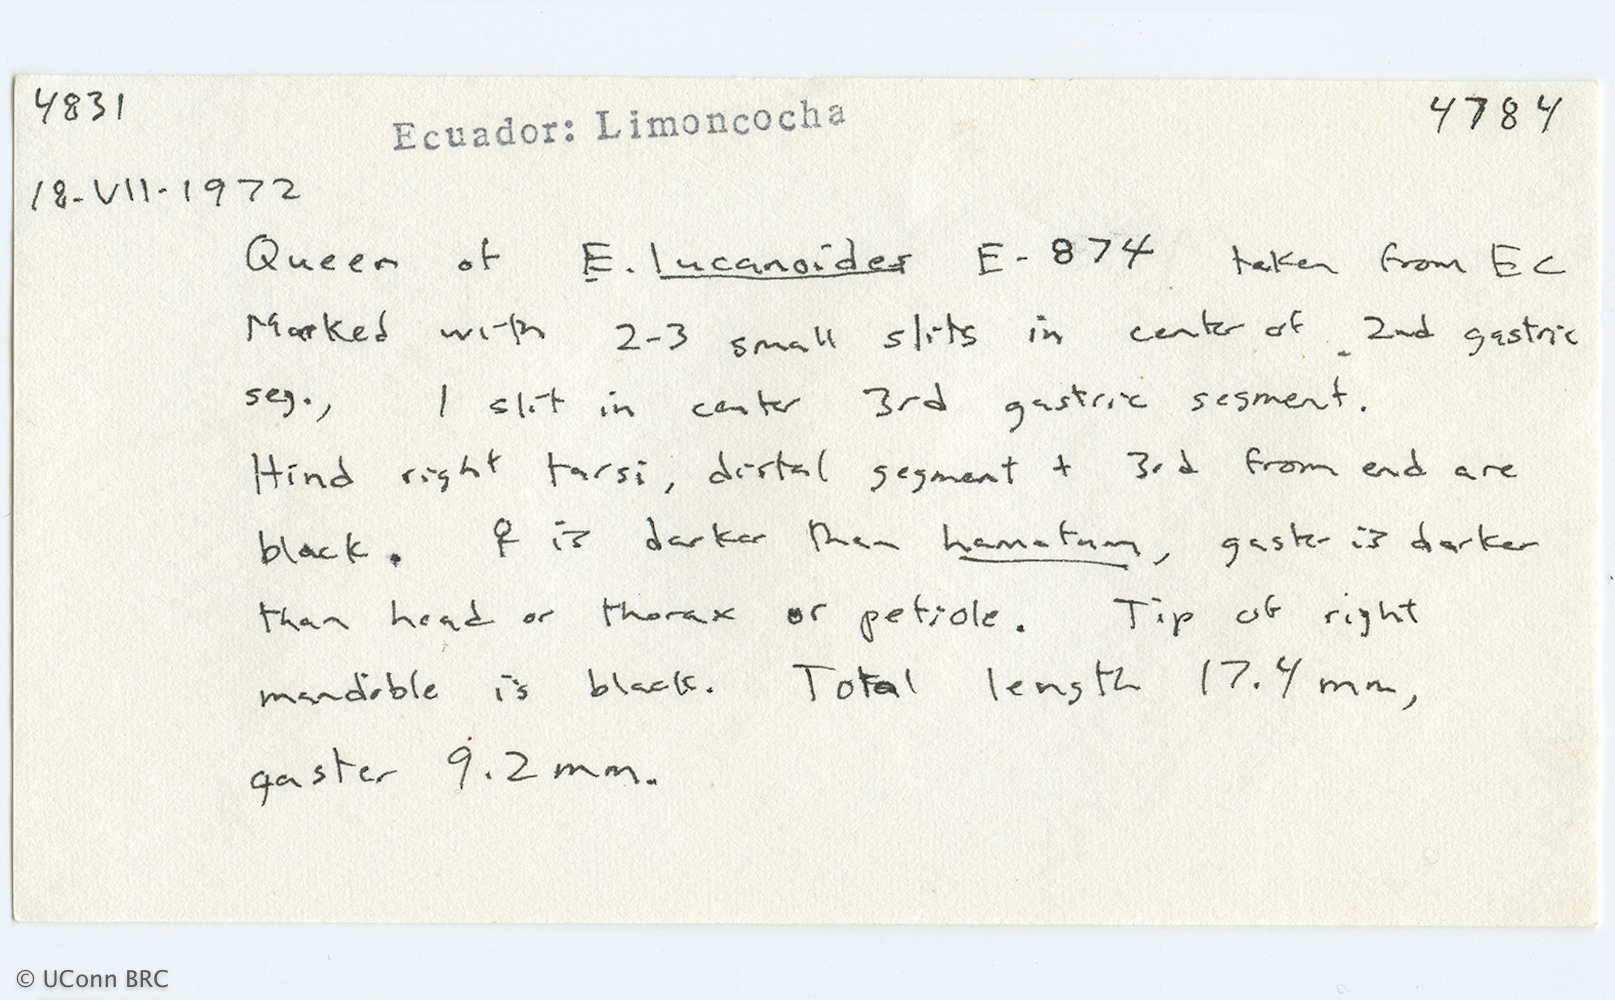 4831
Ecuador: Limoncocha
4784
18-VII-1972
Queen of E. lucanoides E-874 taken from EC
Marked with 2-3 small slits in center of 2nd gastric
seg., 1 slit in center 3rd gastric segment.
Hind right tarsi, distal segment + 3rd from end are
black. ♀ is darker than hamatum, gaster is darker
than head or thorax or petiole. Tip of right
mandible is black. Total length 17.4 mm,
gaster 9.2 mm.
© UConn BRC